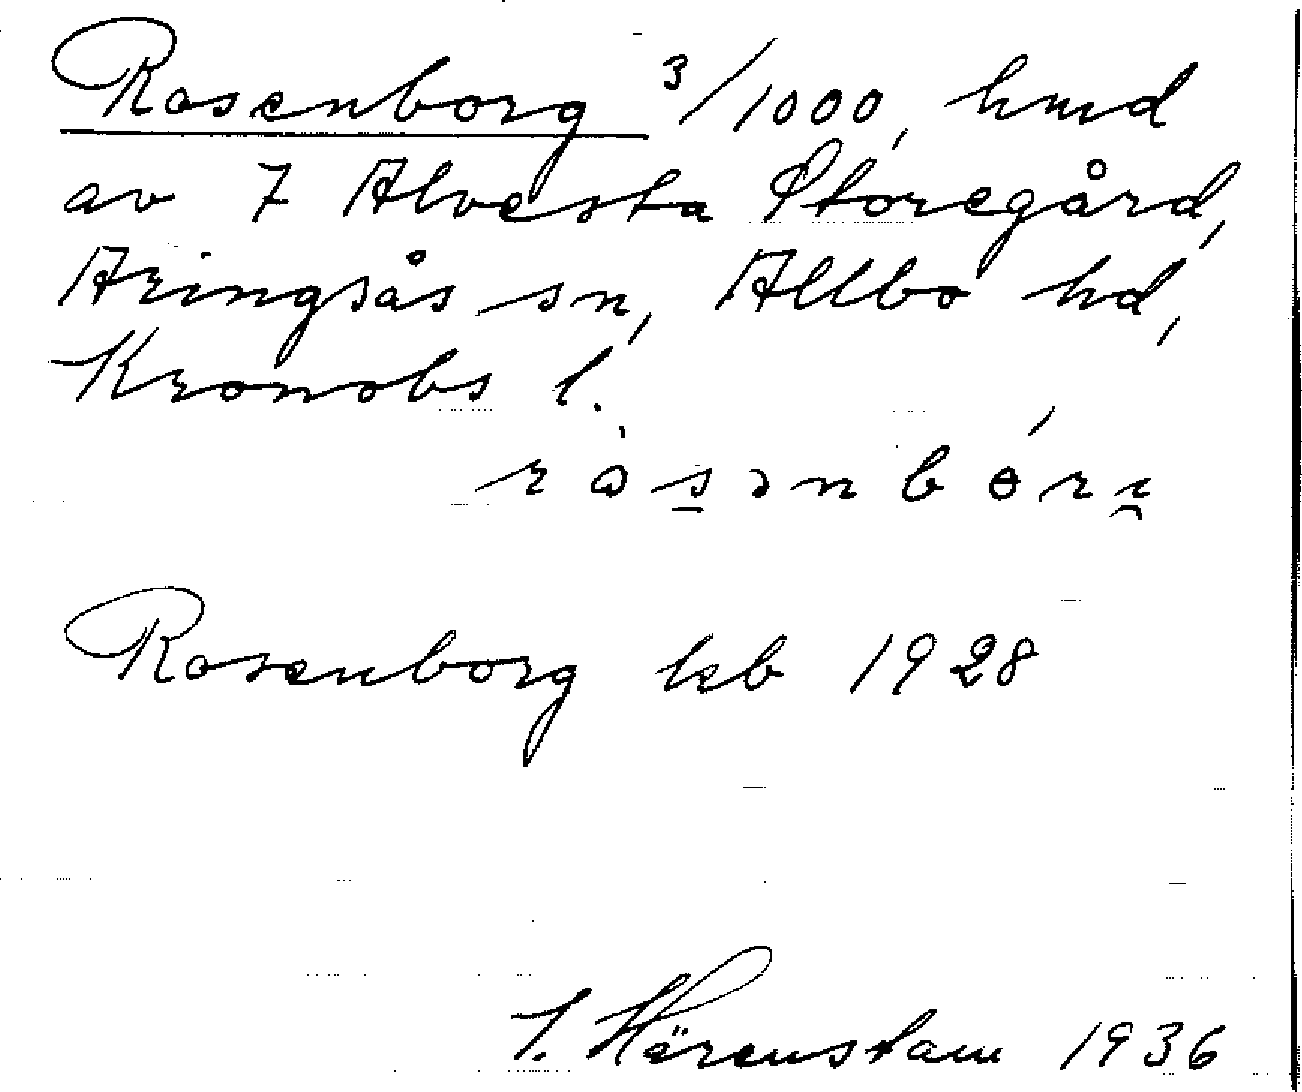 Rosenborg 3/1000, hmd
av 7 Alvesta Storegård,
Aringsås sn, Allbo hd,
Kronobs l.
Rosenborg kb 1928
Härenstam 1936